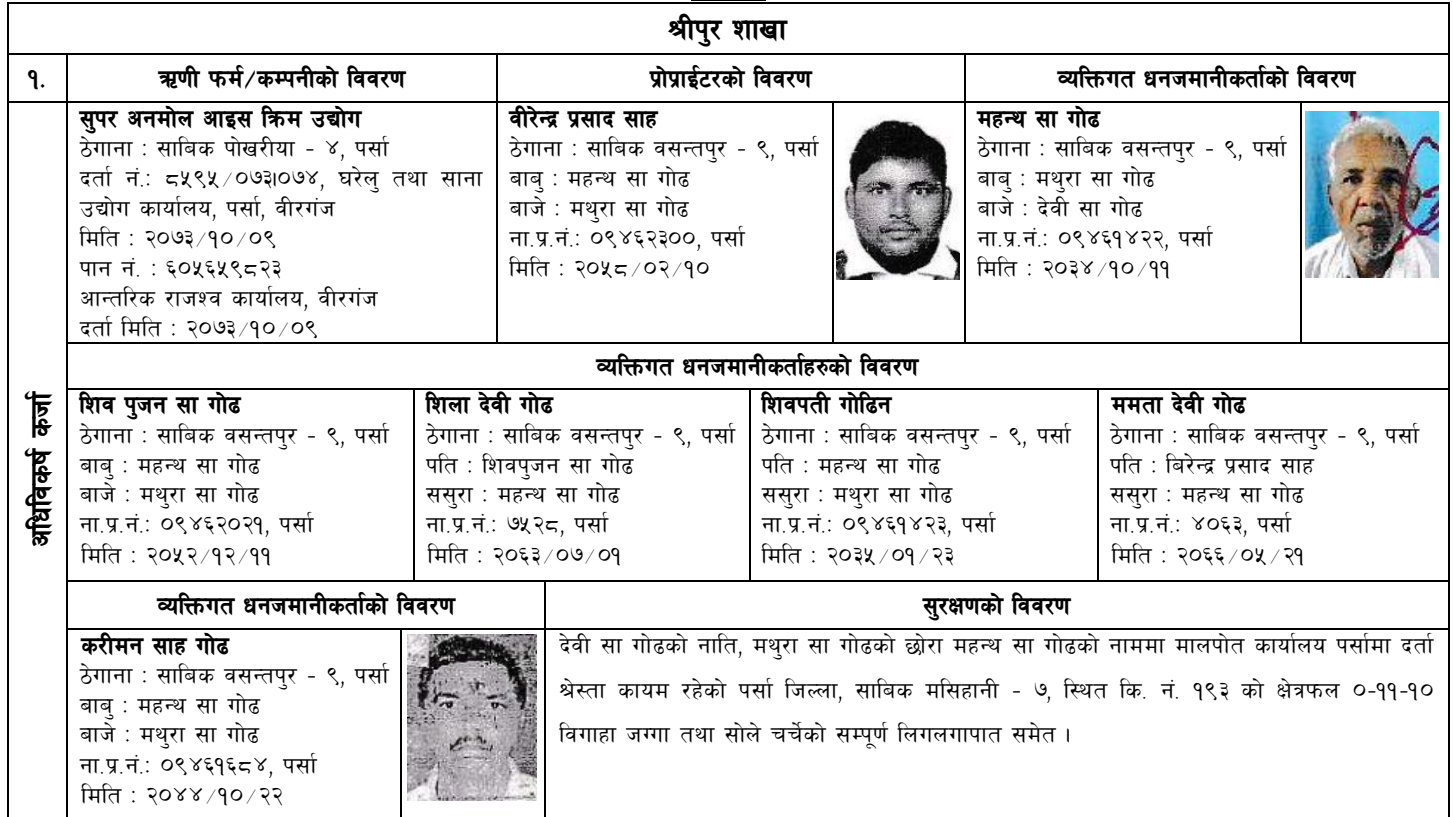 श्रीपुर शाखा
१. ऋणी फर्म/कम्पनीको विवरण प्रोप्राईटरको विवरण व्यक्तिगत धनजमानीकर्ताको विवरण
अधिविकर्ष कर्जा
सुपर अनमोल आइस क्रिम उद्योग
ठेगाना : साबिक पोखरीया - ४, पर्सा
दर्ता नं.: ८५९५/०७३।०७४, घरेलु तथा साना
उद्योग कार्यालय, पर्सा, वीरगंज
मिति : २०७३/१०/०९
पान नं. : ६०५६५९८२३
आन्तरिक राजश्व कार्यालय, वीरगंज
दर्ता मिति : २०७३/१०/०९
वीरेन्द्र प्रसाद साह
ठेगाना : साबिक वसन्तपुर - ९, पर्सा
बाबु : महन्थ सा गोढ
बाजे : मथुरा सा गोढ
ना.प्र.नं.: ०९४६२३००, पर्सा
मिति : २०५८/०२/१०
महन्थ सा गोढ
ठेगाना : साबिक वसन्तपुर - ९, पर्सा
बाबु : मथुरा सा गोढ
बाजे : देवी सा गोढ
ना.प्र.नं.: ०९४६१४२२, पर्सा
मिति : २०३४/१०/११
व्यक्तिगत धनजमानीकर्ताहरुको विवरण
शिव पुजन सा गोढ
ठेगाना : साबिक वसन्तपुर - ९, पर्सा
बाबु : महन्थ सा गोढ
बाजे : मथुरा सा गोढ
ना.प्र.नं.: ०९४६२०२१, पर्सा
मिति : २०५२/१२/११
शिला देवी गोढ
ठेगाना : साबिक वसन्तपुर - ९, पर्सा
पति : शिवपुजन सा गोढ
ससुरा : महन्थ सा गोढ
ना.प्र.नं.: ७५२८, पर्सा
मिति : २०६३/०७/०१
शिवपती गोढिन
ठेगाना : साबिक वसन्तपुर - ९, पर्सा
पति : महन्थ सा गोढ
ससुरा : मथुरा सा गोढ
ना.प्र.नं.: ०९४६१४२३, पर्सा
मिति : २०३५/०१/२३
ममता देवी गोढ
ठेगाना : साबिक वसन्तपुर - ९, पर्सा
पति : बिरेन्द्र प्रसाद साह
ससुरा : महन्थ सा गोढ
ना.प्र.नं.: ४०६३, पर्सा
मिति : २०६६/०५/२१
व्यक्तिगत धनजमानीकर्ताको विवरण सुरक्षणको विवरण
करीमन साह गोढ
ठेगाना : साबिक वसन्तपुर - ९, पर्सा
बाबु : महन्थ सा गोढ
बाजे : मथुरा सा गोढ
ना.प्र.नं.: ०९४६१६८४, पर्सा
मिति : २०४४/१०/२२
देवी सा गोढको नाति, मथुरा सा गोढको छोरा महन्थ सा गोढको नाममा मालपोत कार्यालय पर्सामा दर्ता
श्रेस्ता कायम रहेको पर्सा जिल्ला, साबिक मसिहानी - ७, स्थित कि. नं. १९३ को क्षेत्रफल ०-११-१०
विगाहा जग्गा तथा सोले चर्चेको सम्पूर्ण लिगलगापात समेत ।